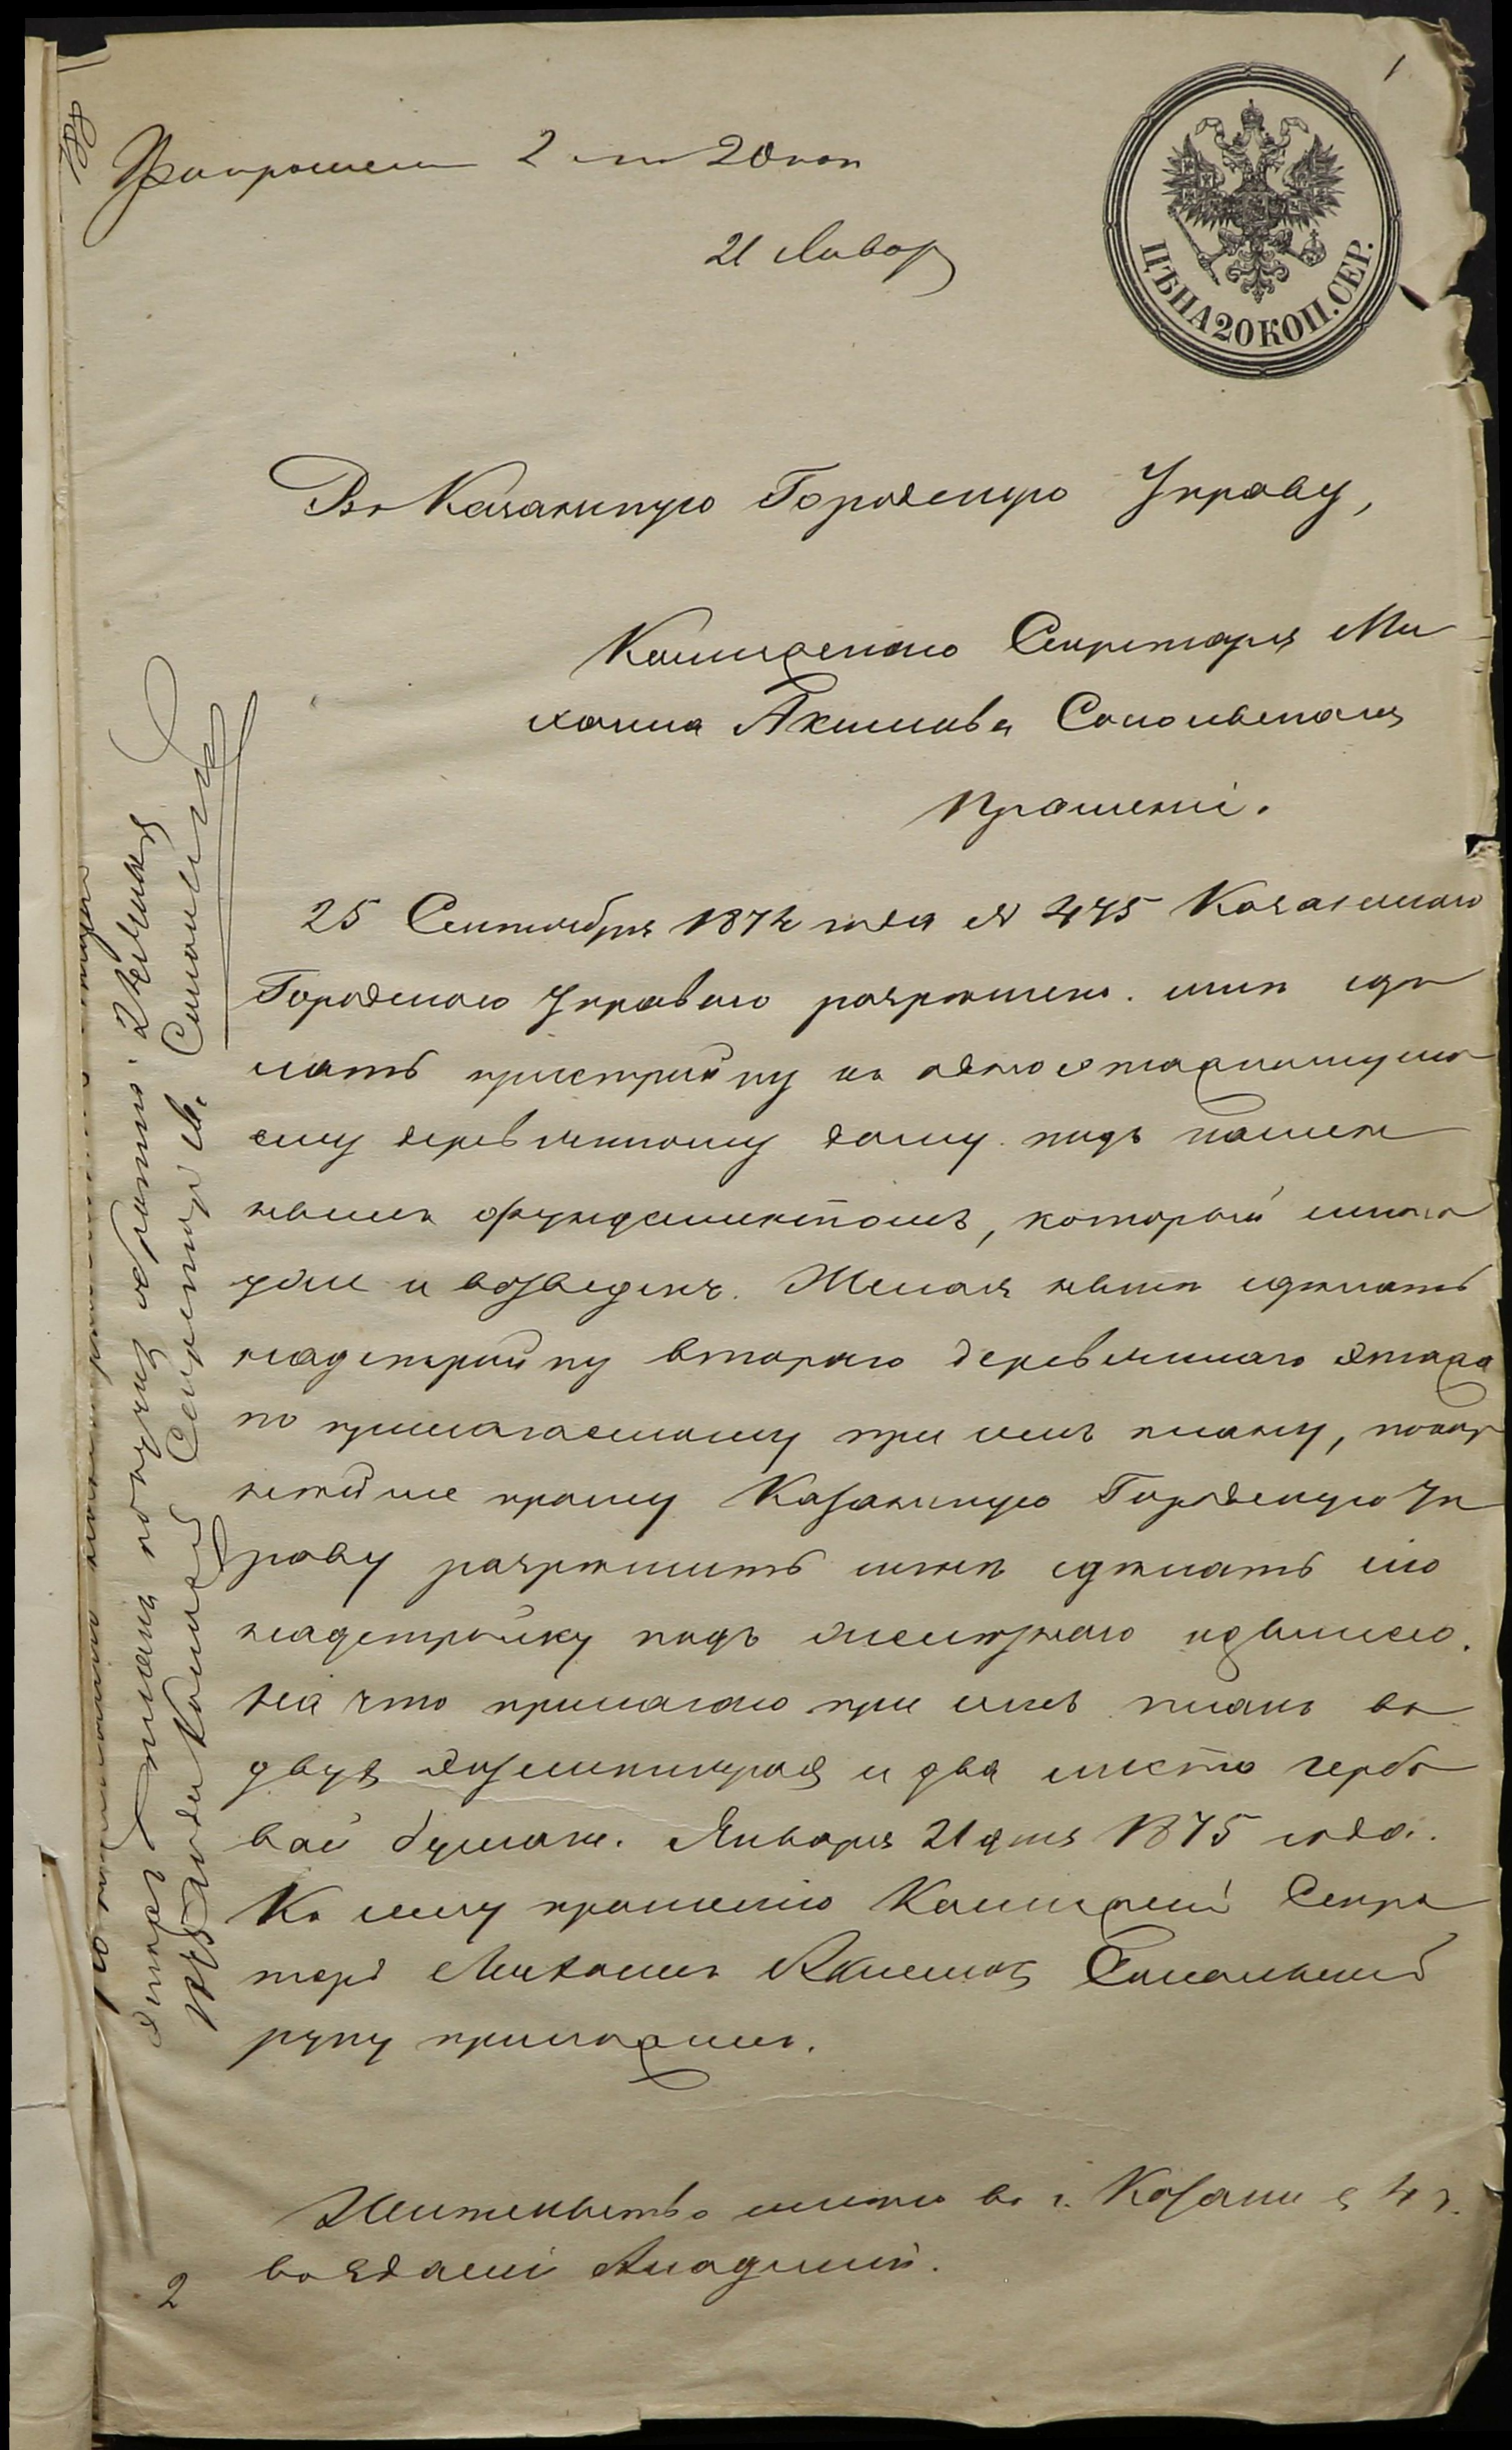 1
188
2 20 коп
21 Январ
ЦѢНА 20 КОП. СЕР.
Въ Казанскую Городскую Управу,
Коллежскаго Секретаря Ми
хаила Акимова Сокольскаго
Прошеніе.
25 Сентября 1874 года № 475 Казанскою
Городскою Управою разрѣшено мнѣ сдѣ
лать пристройку къ одноэтажному мо
ему деревянному дому подъ камен
нымъ фундаментомъ, который мною
уже и возведенъ. Желая нынѣ сдѣлать
надстройку втораго деревяннаго этажа
по прилагаемому при семъ плану, покор
нѣйше прошу Казанскую Городскую Уп
раву разрѣшить мнѣ сдѣлать сію
надстройку подъ желѣзною крышею.
На что прилагаю при семъ планъ въ
двухъ экземплярахъ и два листа гербо
вой бумаги. Января 21 дня 1875 года.
Къ сему прошенію Коллежскій Секре
тарь Михаилъ Акимовъ Сокольскій
руку приложилъ.
Жительство имѣю въ г. Казани в 4 г.
въ зданіи Академіи.
планъ получилъ обратно
1875 года Коллежскій Секретарь М. Сокольскій
2